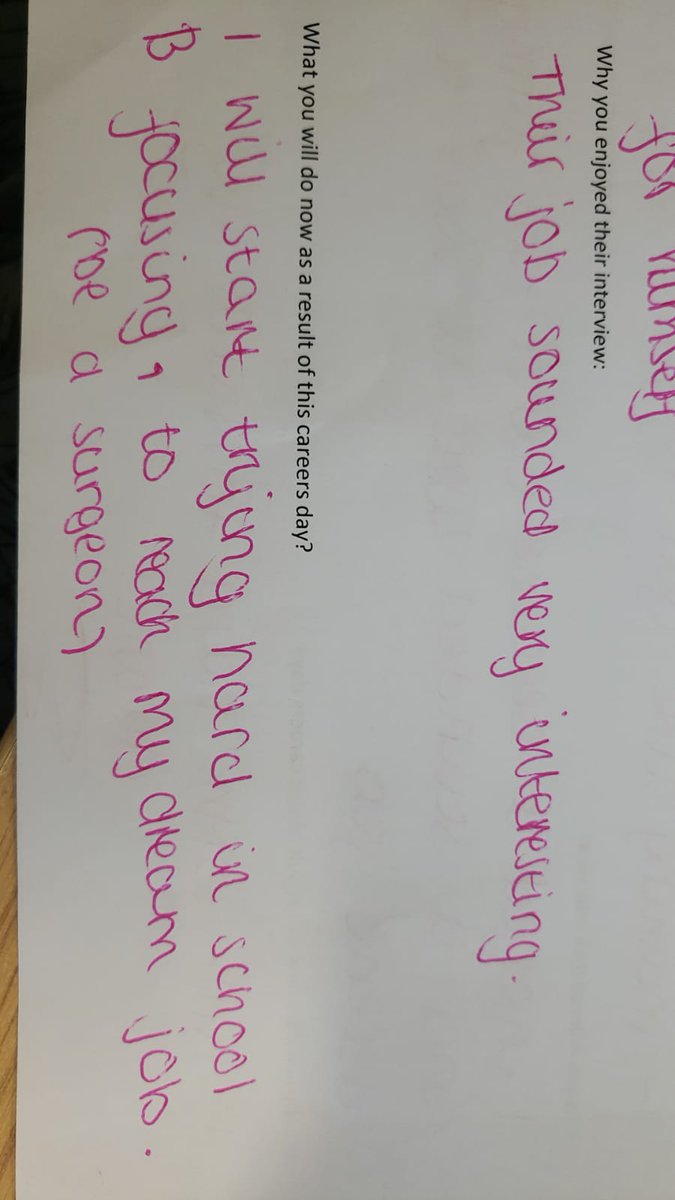 for himself
Why you enjoyed their interview:
Their job sounded very interesting.
What you will do now as a result of this careers day?
I will start trying hard in school
& focusing, to reach my dream job.
(be a surgeon)